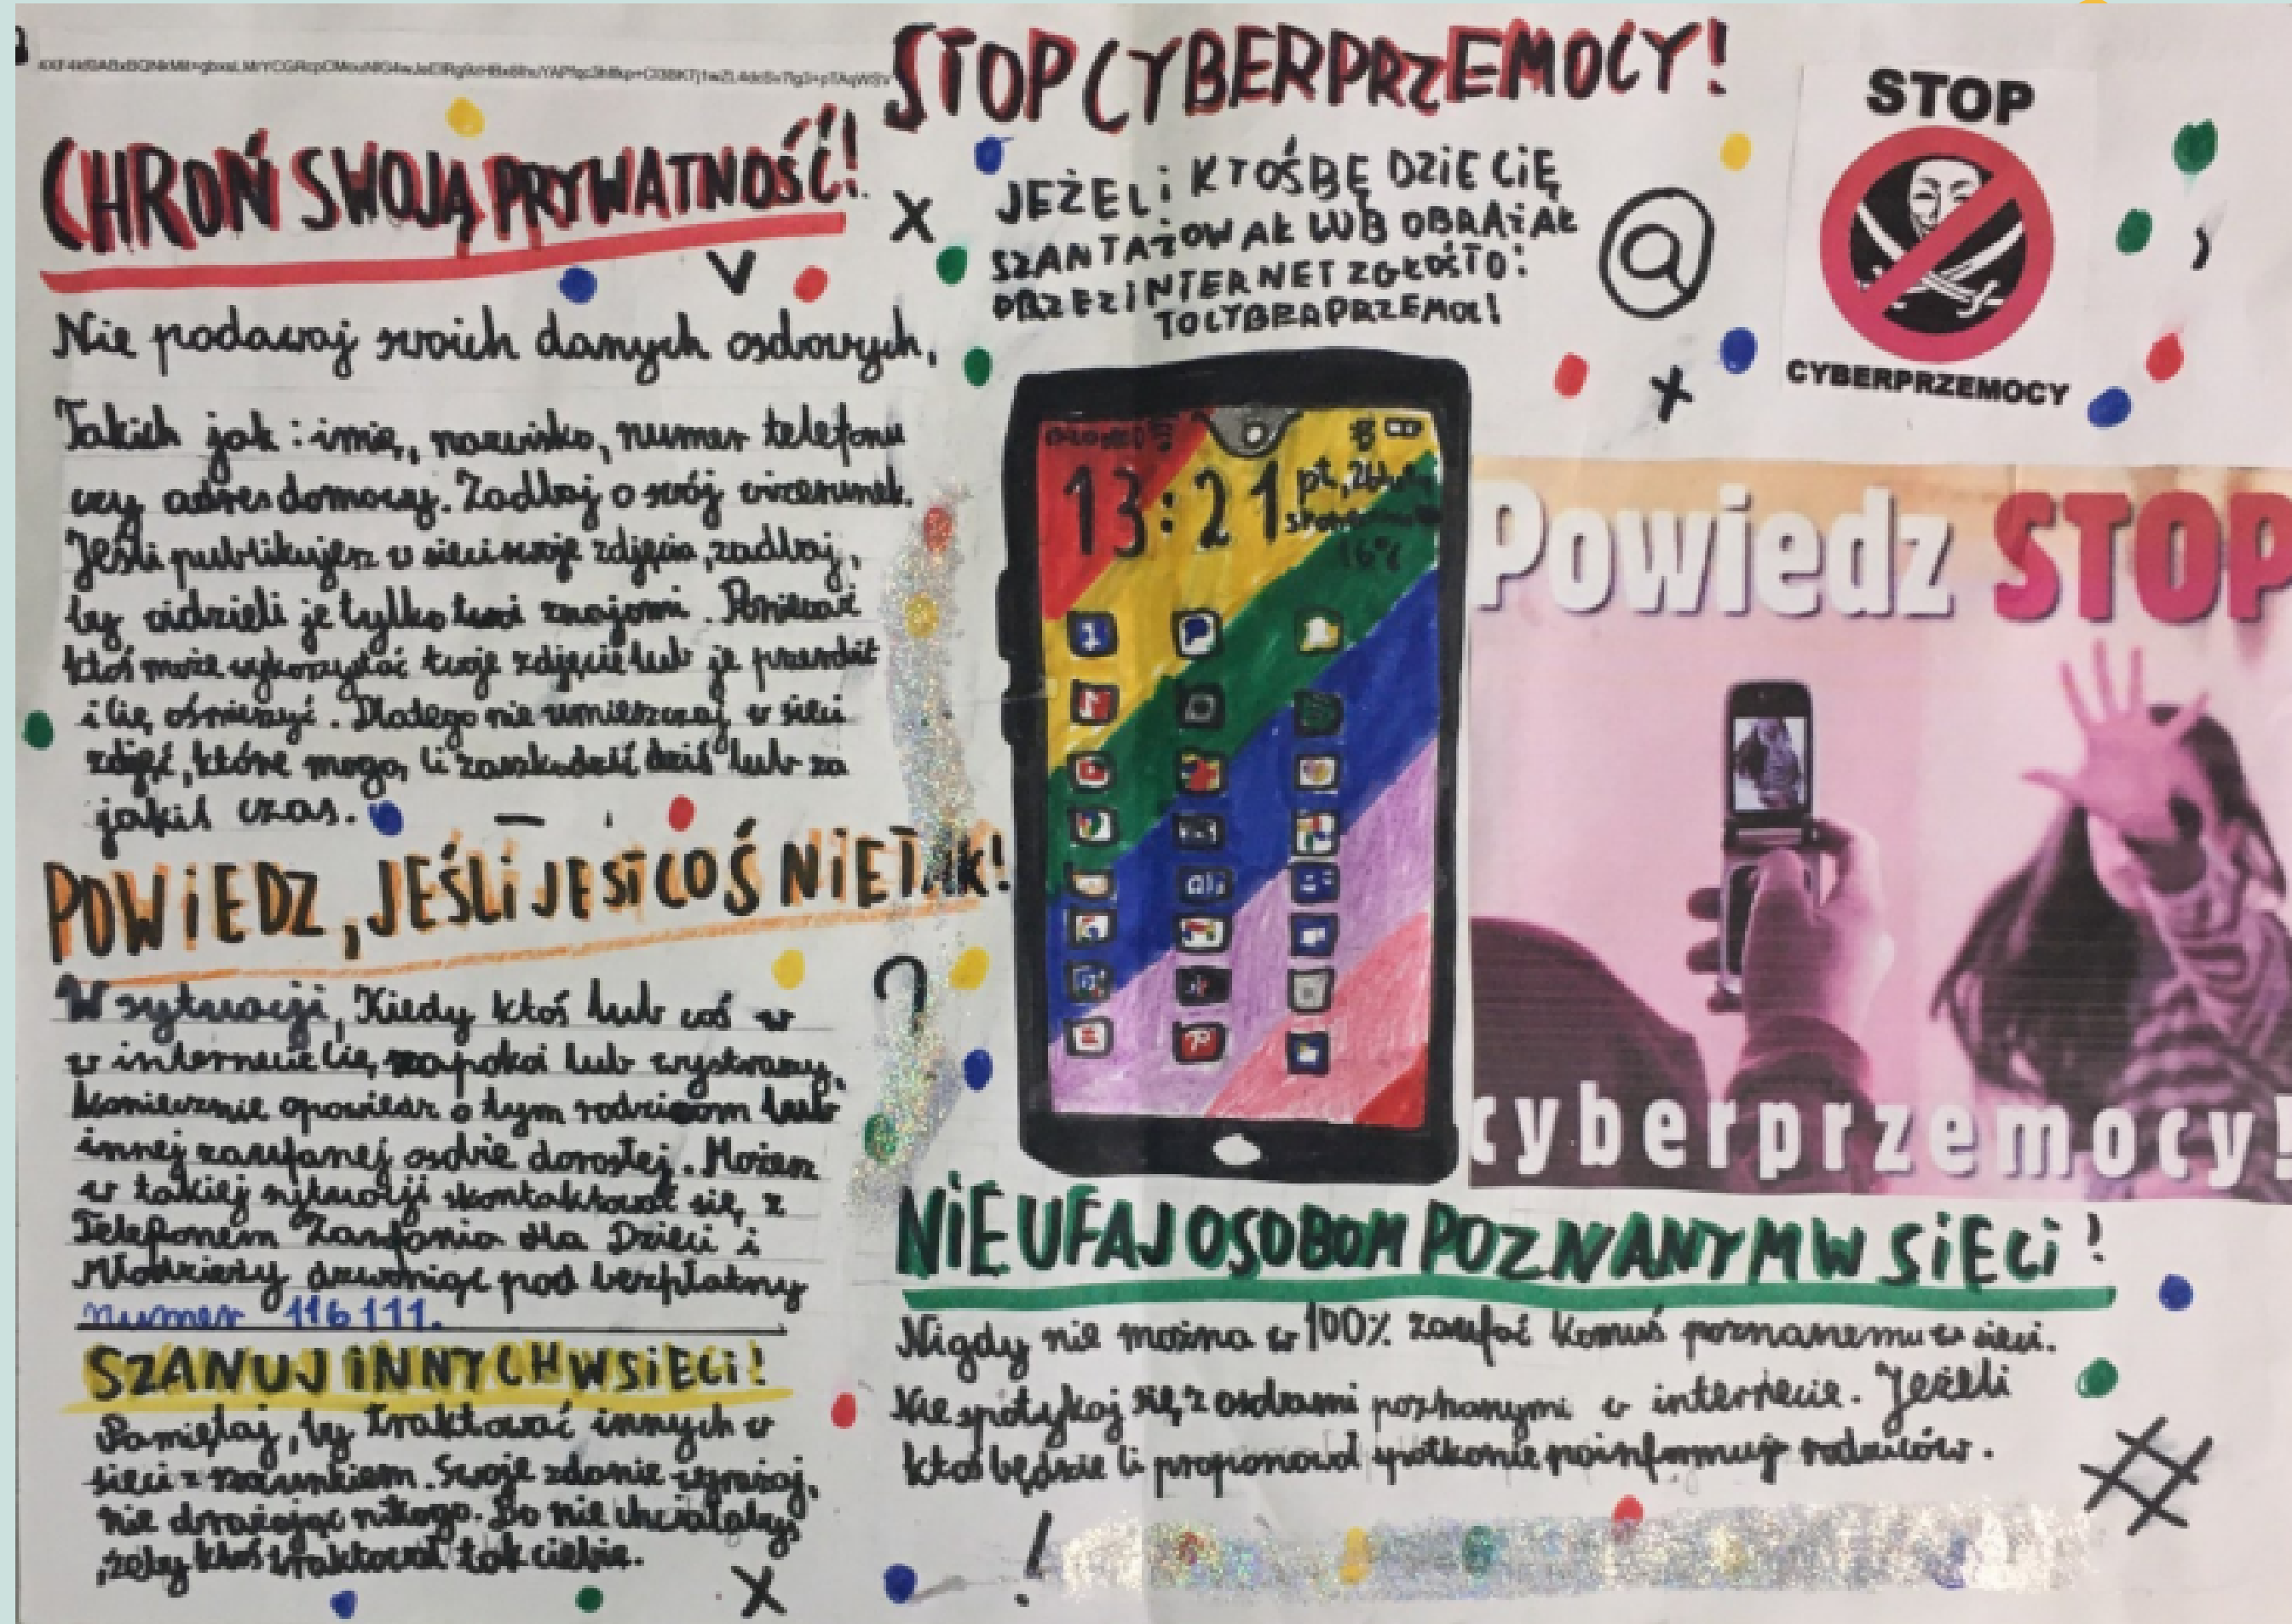 CHROŃ SWOJĄ PRYWATNOŚĆ!
Nie podawaj swoich danych osobowych,
Takich jak : imię, nazwisko, numer telefonu
czy adres domowy. Zadbaj o swój wizerunek.
Jeśli publikujesz w sieci swoje zdjęcia, zadbaj,
by widzieli je tylko twoi znajomi. Ponieważ
ktoś może wykorzystać twoje zdjęcie lub je przerobić
i cię ośmieszyć. Dlatego nie umieszczaj w sieci
zdjęć, które mogą ci zaszkodzić dziś lub za
jakiś czas.
POWIEDZ, JEŚLI JEST COŚ NIE TAK!
W sytuacji, Kiedy ktoś lub coś w
w internecie cię lub wystraszy,
koniecznie opowiedz o tym rodzicom lub
innej zaufanej osobie dorosłej. Możesz
w takiej sytuacji skontaktować się z
Telefonem Zaufania dla Dzieci i
Młodzieży dzwoniąc pod bezpłatny
numer 116 111.
SZANUJ INNYCH W SIECI!
Pamiętaj, by traktować innych w
sieci z szacunkiem. Swoje zdanie wyrażaj,
nie obrażając nikogo. Bo nie chciałabyś,
żeby ktoś traktował tak ciebie.
STOP CYBERPRZEMOCY!
JEŻELI KTOŚ BĘDZIE CIĘ
SZANTAŻOWAŁ LUB OBRAŻAŁ
PRZEZ INTERNET ZGŁOŚ TO:
TO CYBERPRZEMOC!
STOP
CYBERPRZEMOCY
13:21
pt, 26
16°C
Powiedz STOP
cyberprzemocy!
NIE UFAJ OSOBOM POZNANYM W SIECI!
Nigdy nie można w 100% zaufać komuś poznanemu w sieci.
Nie spotykaj się z osobami poznanymi w internecie. Jeżeli
ktoś będzie ci proponował spotkanie poinformuj rodziców.